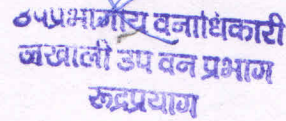 उपप्रभागीय वनाधिकारी
जखोली उप वन प्रभाग
रूद्रप्रयाग